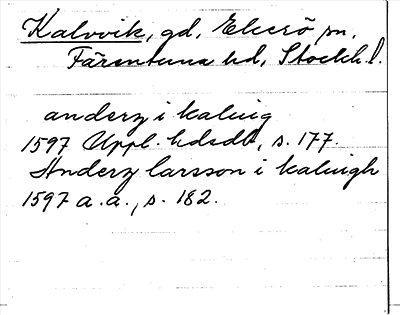 Kalvvik, gd, Ekerö sn,
Färentuna hd, Stockh. l.
anderz i kaluig
1597 Uppl. hdsdb, s. 177.
Anderz larsson i kaluigh
1597 a. a., s. 182.